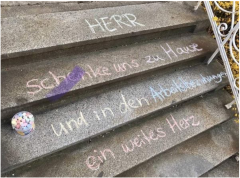 HERR
schenke uns zu Hause
und in den Arbeitsbeziehungen
ein weites Herz